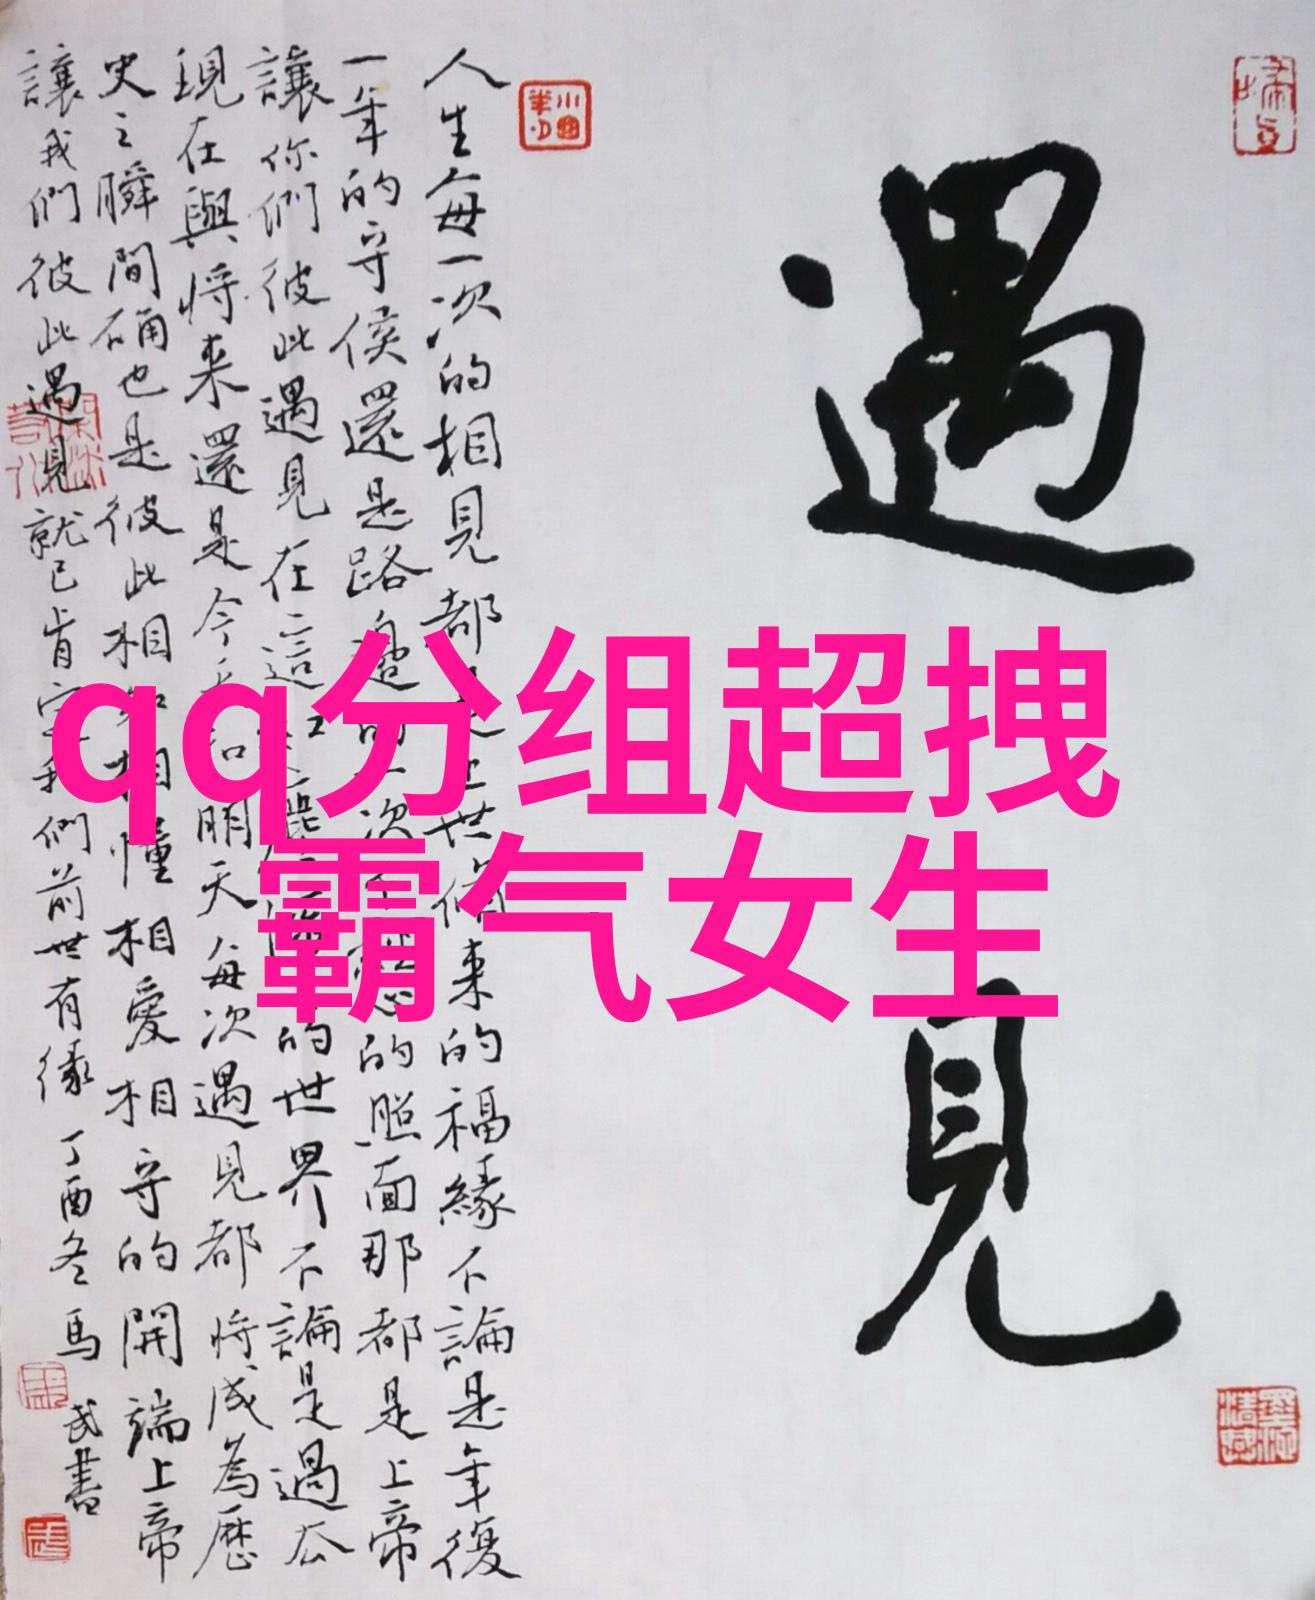 遇見
人生每一次的相見都是上世修来的福緣不論是年復
一年的守侯還是路邊的一次不経心的照面那都是上帝
讓你們彼此遇見在這的世界不論是過去
現在與将来還是今天和明天每次遇見都将成為歷
史之瞬間确也是彼此相知相懂相愛相守的開端上帝
讓我們彼此遇見就已肯定我們前世有缘丁酉冬馬
武書
qq分组超拽
霸气女生